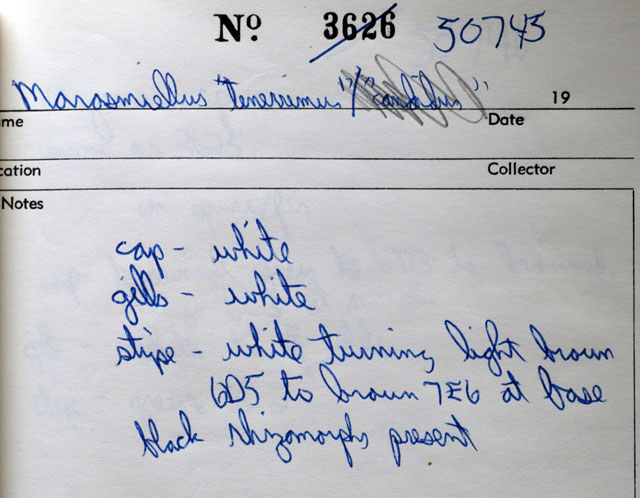 Nº 3626 50745
Marasmiellus "tenerrimus"/"candidus"
19
me Date
cation Collector
Notes
cap - white
gills - white
stipe - white turning light brown
6D5 to brown 7E6 at base
black rhizomorphs present